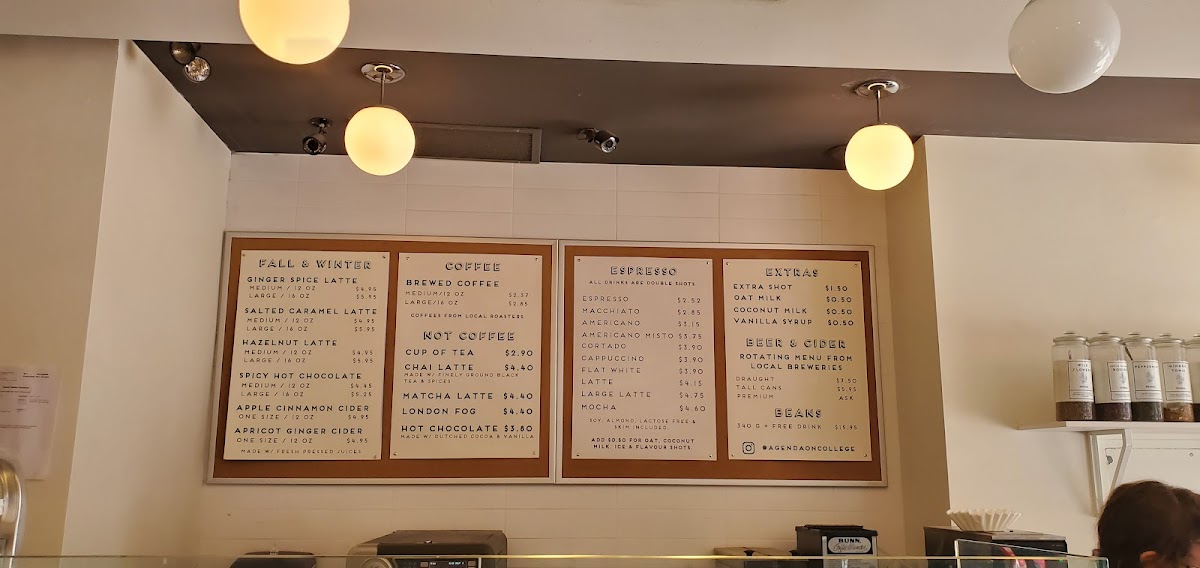 FALL & WINTER
GINGER SPICE LATTE
MEDIUM / 12 OZ $4.95
LARGE / 16 OZ $5.95
SALTED CARAMEL LATTE
MEDIUM / 12 OZ $4.95
LARGE / 16 OZ $5.95
HAZELNUT LATTE
MEDIUM / 12 OZ $4.95
LARGE / 16 OZ $5.95
SPICY HOT CHOCOLATE
MEDIUM / 12 OZ $4.45
LARGE / 16 OZ $5.25
APPLE CINNAMON CIDER
ONE SIZE / 12 OZ $4.95
APRICOT GINGER CIDER
ONE SIZE / 12 OZ $4.95
MADE W/ FRESH PRESSED JUICES
COFFEE
BREWED COFFEE
MEDIUM/12 OZ $2.37
LARGE/16 OZ $2.85
COFFEES FROM LOCAL ROASTERS
NOT COFFEE
CUP OF TEA $2.90
CHAI LATTE $4.40
MADE W/ FINELY GROUND BLACK
TEA & SPICES
MATCHA LATTE $4.40
LONDON FOG $4.40
HOT CHOCOLATE $3.80
MADE W/ DUTCHED COCOA & VANILLA
ESPRESSO
ALL DRINKS ARE DOUBLE SHOTS
ESPRESSO $2.52
MACCHIATO $2.85
AMERICANO $3.15
AMERICANO MISTO $3.75
CORTADO $3.90
CAPPUCCINO $3.90
FLAT WHITE $3.90
LATTE $4.15
LARGE LATTE $4.75
MOCHA $4.60
SOY, ALMOND, LACTOSE FREE &
SKIM INCLUDED.
ADD $0.50 FOR OAT, COCONUT
MILK, ICE & FLAVOUR SHOTS.
EXTRAS
EXTRA SHOT $1.50
OAT MILK $0.50
COCONUT MILK $0.50
VANILLA SYRUP $0.50
BEER & CIDER
ROTATING MENU FROM
LOCAL BREWERIES
DRAUGHT $7.50
TALL CANS $5.95
PREMIUM ASK
BEANS
340 G + FREE DRINK $15.95
@AGENDAONCOLLEGE
BUNN